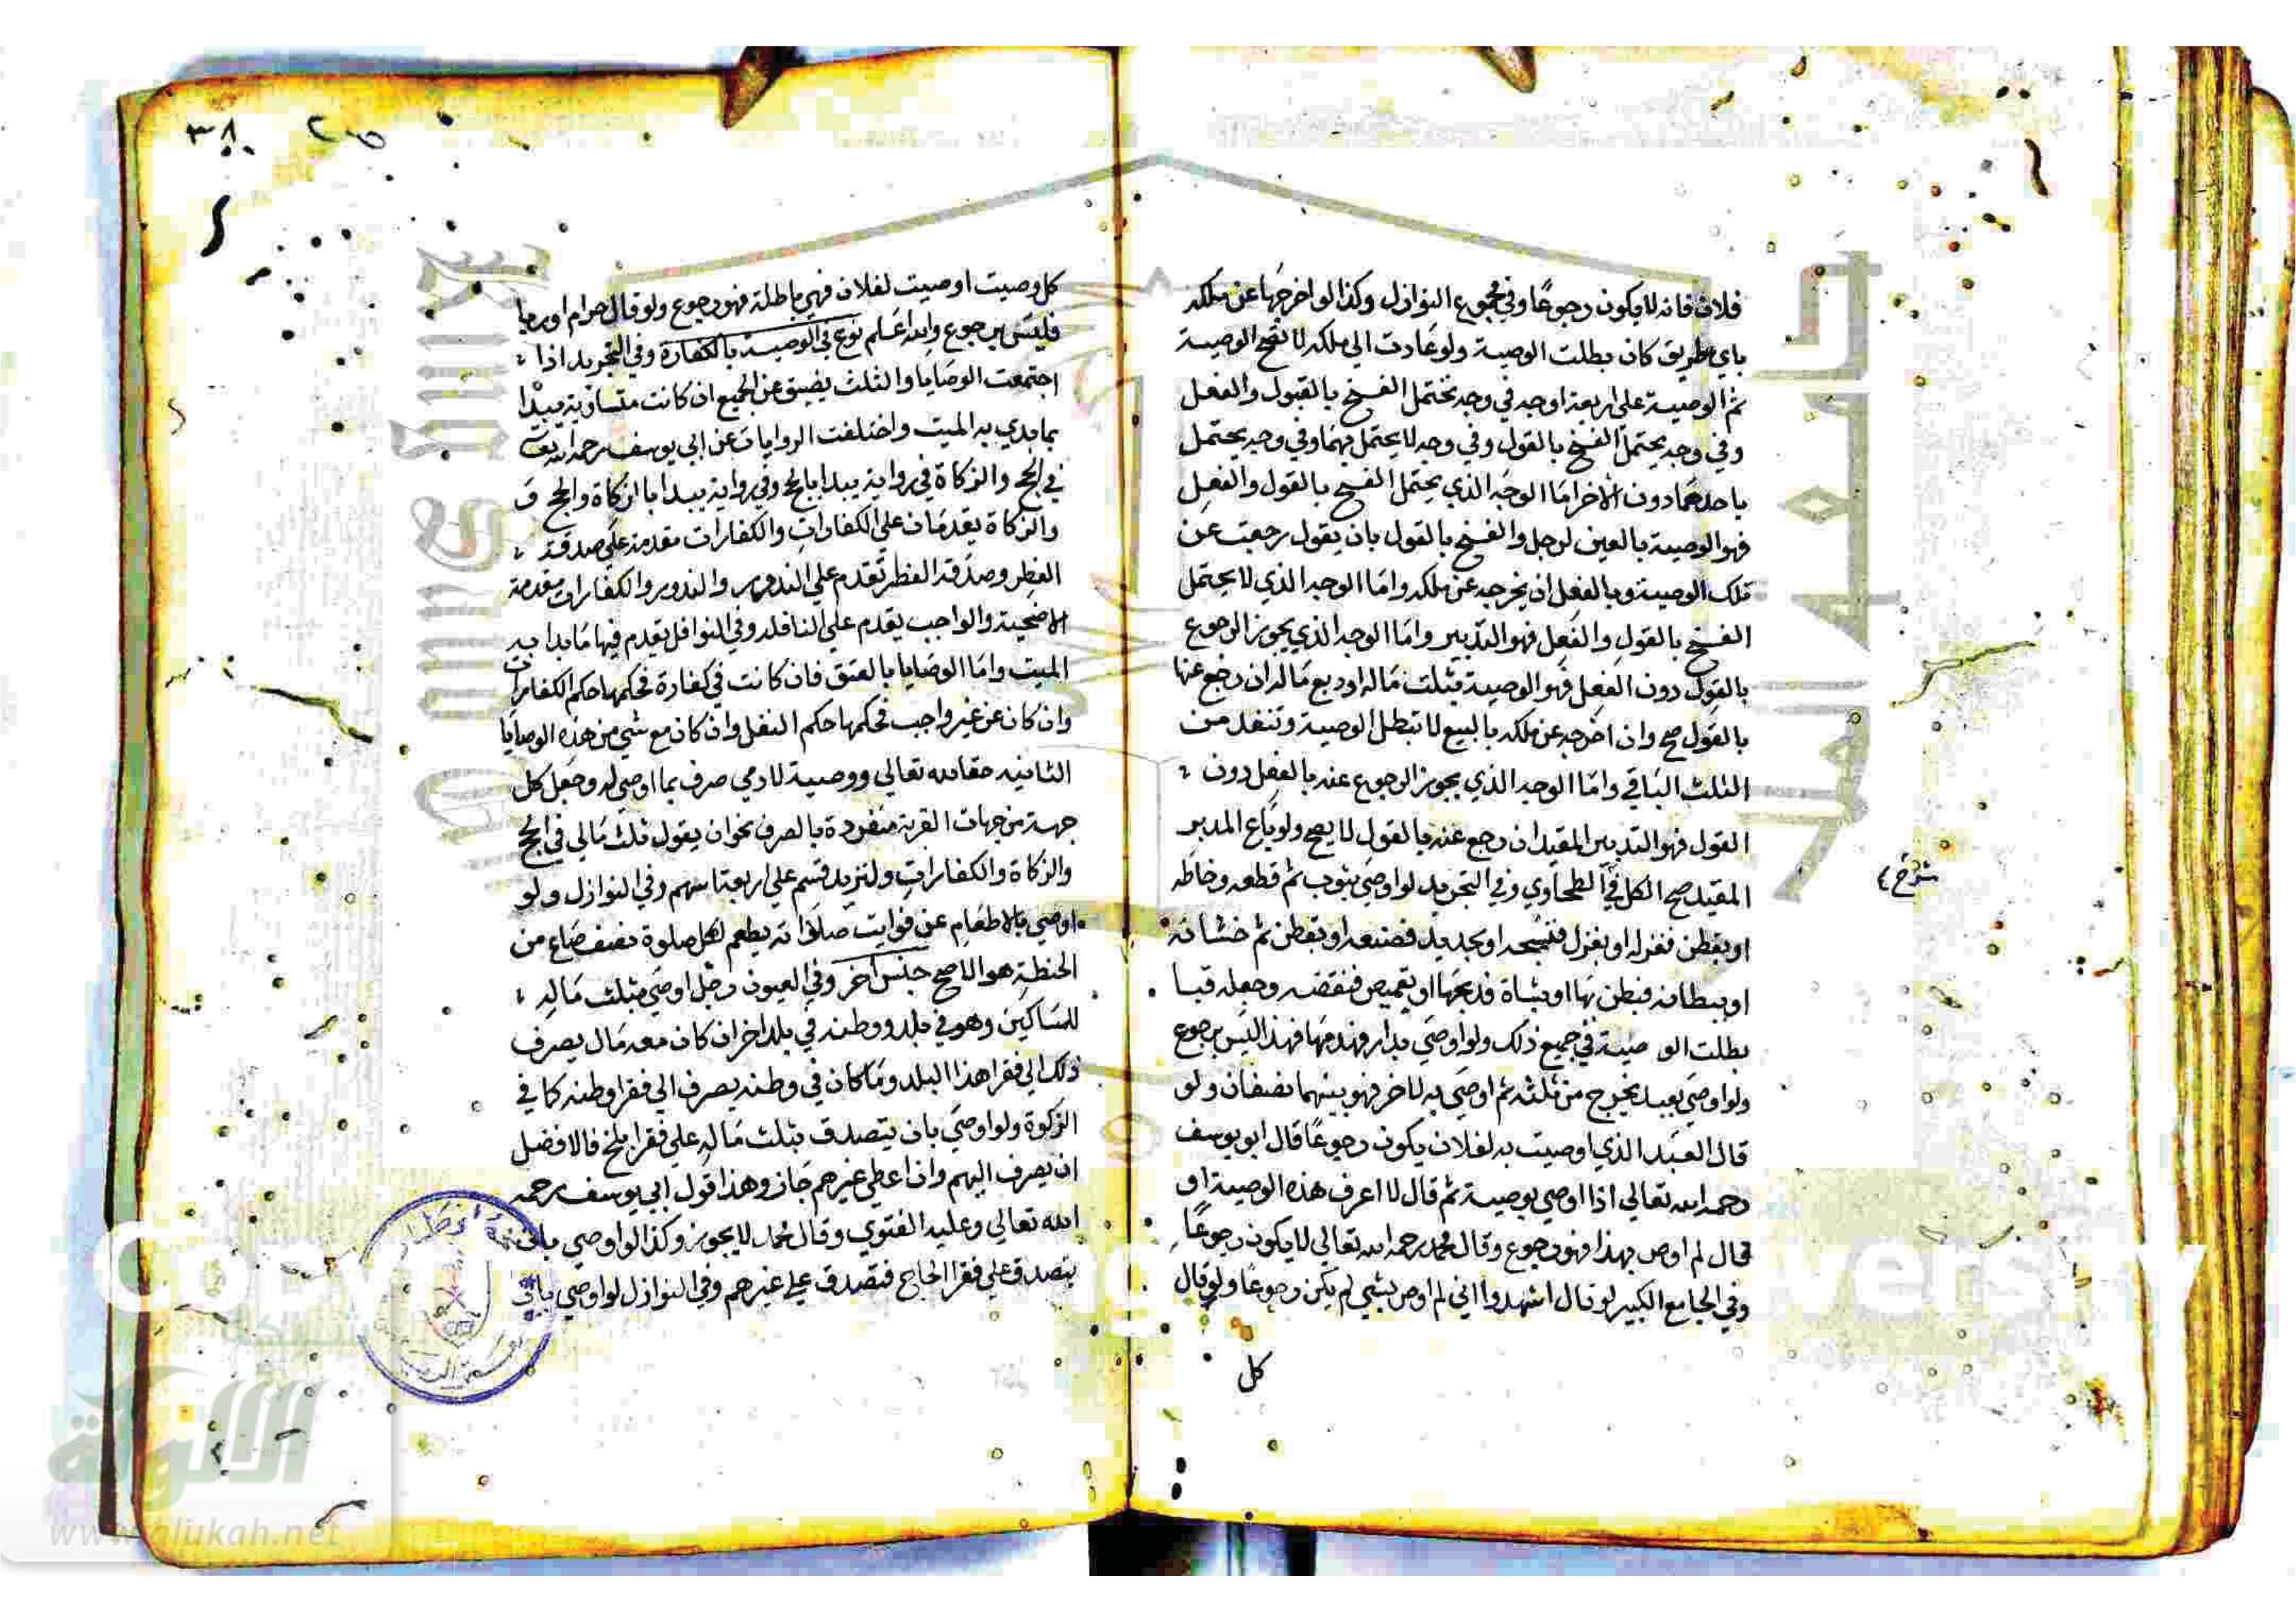 فلان فانه لا يكون رجوعًا وفي مجموع النوازل وكذا لو اخرجها عن ملكه
باي طريق كان بطلت الوصية ولو عادت الي ملكه لا تصح الوصية
ثم الوصية على اربعة اوجه في وجه تحتمل الفسخ بالقبول والفعل
وفي وجه يحتمل الفسخ بالقول وفي وجه لا يحتمل بهما وفي وجه يحتمل
باحدهما دون الاخر اما الوجه الذي يحتمل الفسخ بالقول والفعل
فهو الوصية بالعين لرجل والفسخ بالقول بان يقول رجعت عن
تلك الوصية وبالفعل ان يخرجه عن ملكه واما الوجه الذي لا يحتمل
الفسخ بالقول والفعل فهو التدبير واما الوجه الذي يجوز الرجوع
بالقول دون الفعل فهو الوصية بثلث ماله او ربع ماله ان رجع عنها
بالقول صح وان اخرجه عن ملكه بالبيع لا تبطل الوصية وتنفذ من
الثلث الباقي واما الوجه الذي يجوز الرجوع عنه بالفعل دون
القول فهو التدبير المقيد ان رجع عنه بالقول لا يصح ولو باع المدبر
المقيد صح الكل في الطحاوي وفي التجريد لو اوصي بثوب ثم قطعه وخاطه
شرح
او بقطن فغزله او بغزل فنسجه او بحديد فصنعه او بقطن ثم حشا به
او ببطانة فبطن بها او بشاة فذبحها او بقميص فنقضه وجعله قبا
بطلت الو صية في جميع ذلك ولو اوصي بدار فهدمها فهذا ليس برجوع
ولو اوصي بعبد يخرج من ثلثه ثم اوصي به لاخر فهو بينهما نصفان ولو
قال العبد الذي اوصيت به لفلان يكون رجوعًا قال ابو يوسف
رحمه الله تعالي اذا اوصي بوصية ثم قال لا اعرف هذه الوصية او
قال لم اوص بهذا فهو رجوع وقال محمد رحمه الله تعالي لا يكون رجوعًا
وفي الجامع الكبير لو قال اشهدوا اني لم اوص بشي لم يكن رجوعًا ولو قال
كل
٣٨
كل وصيت اوصيت لفلان فهي باطلة فهو رجوع ولو قال حرام او ربا
فليس برجوع والله اعلم نوع في الوصية بالكفارة وفي التجريد اذا
اجتمعت الوصايا والثلث يضيق عن الجميع ان كانت متساوية يبدا
بما بدي به الميت واختلفت الروايات عن ابي يوسف رحمه الله تع
في الحج والزكاة في رواية يبدا بالحج وفي رواية يبدا بالزكاة والحج
والزكاة يقدمان على الكفارات والكفارات مقدمة علي صدقة
الفطر وصدقة الفطر تقدم علي النذور والنذور والكفارات مقدمة
الاضحية والواجب يقدم علي النافلة وفي النوافل يقدم فيها ما بدا به
الميت واما الوصايا بالعتق فان كانت في كفارة فحكمها حكم الكفارات
وان كان عن غير واجب فحكمها حكم النفل وان كان مع شي من هذه الوصايا
الثانيه حقا لله تعالي ووصية لادمي صرف بما اوصي له وجعل كل
جهة من جهات القربة منفردة بالصرف نحو ان يقول ثلث مالي في الحج
والزكاة والكفارات ولزيد قسم علي اربعة اسهم وفي النوازل ولو
اوصي بالاطعام عن فوايت صلاته يطعم لكل صلوة نصف صاع من
الحنطة هو الاصح جنس آخر وفي العيون رجل اوصي بثلث ماله
للمساكين وهو في بلد ووطنه في بلد اخر ان كان معه مال يصرف
ذلك الي فقرا هذا البلد وما كان في وطنه يصرف الي فقرا وطنه كما في
الزكوة ولو اوصي بان يتصدق بثلث ماله علي فقرا بلخ فالافضل
ان يصرف اليهم وان اعطي غيرهم جاز وهذا قول ابي يوسف رحمه
الله تعالي وعليه الفتوي وقال محمد لا يجوز وكذا لو اوصي بان
يتصدق علي فقرا الحاج فتصدق علي غيرهم وفي النوازل لو اوصي بان
شبكة
الألوكة
www.alukah.net